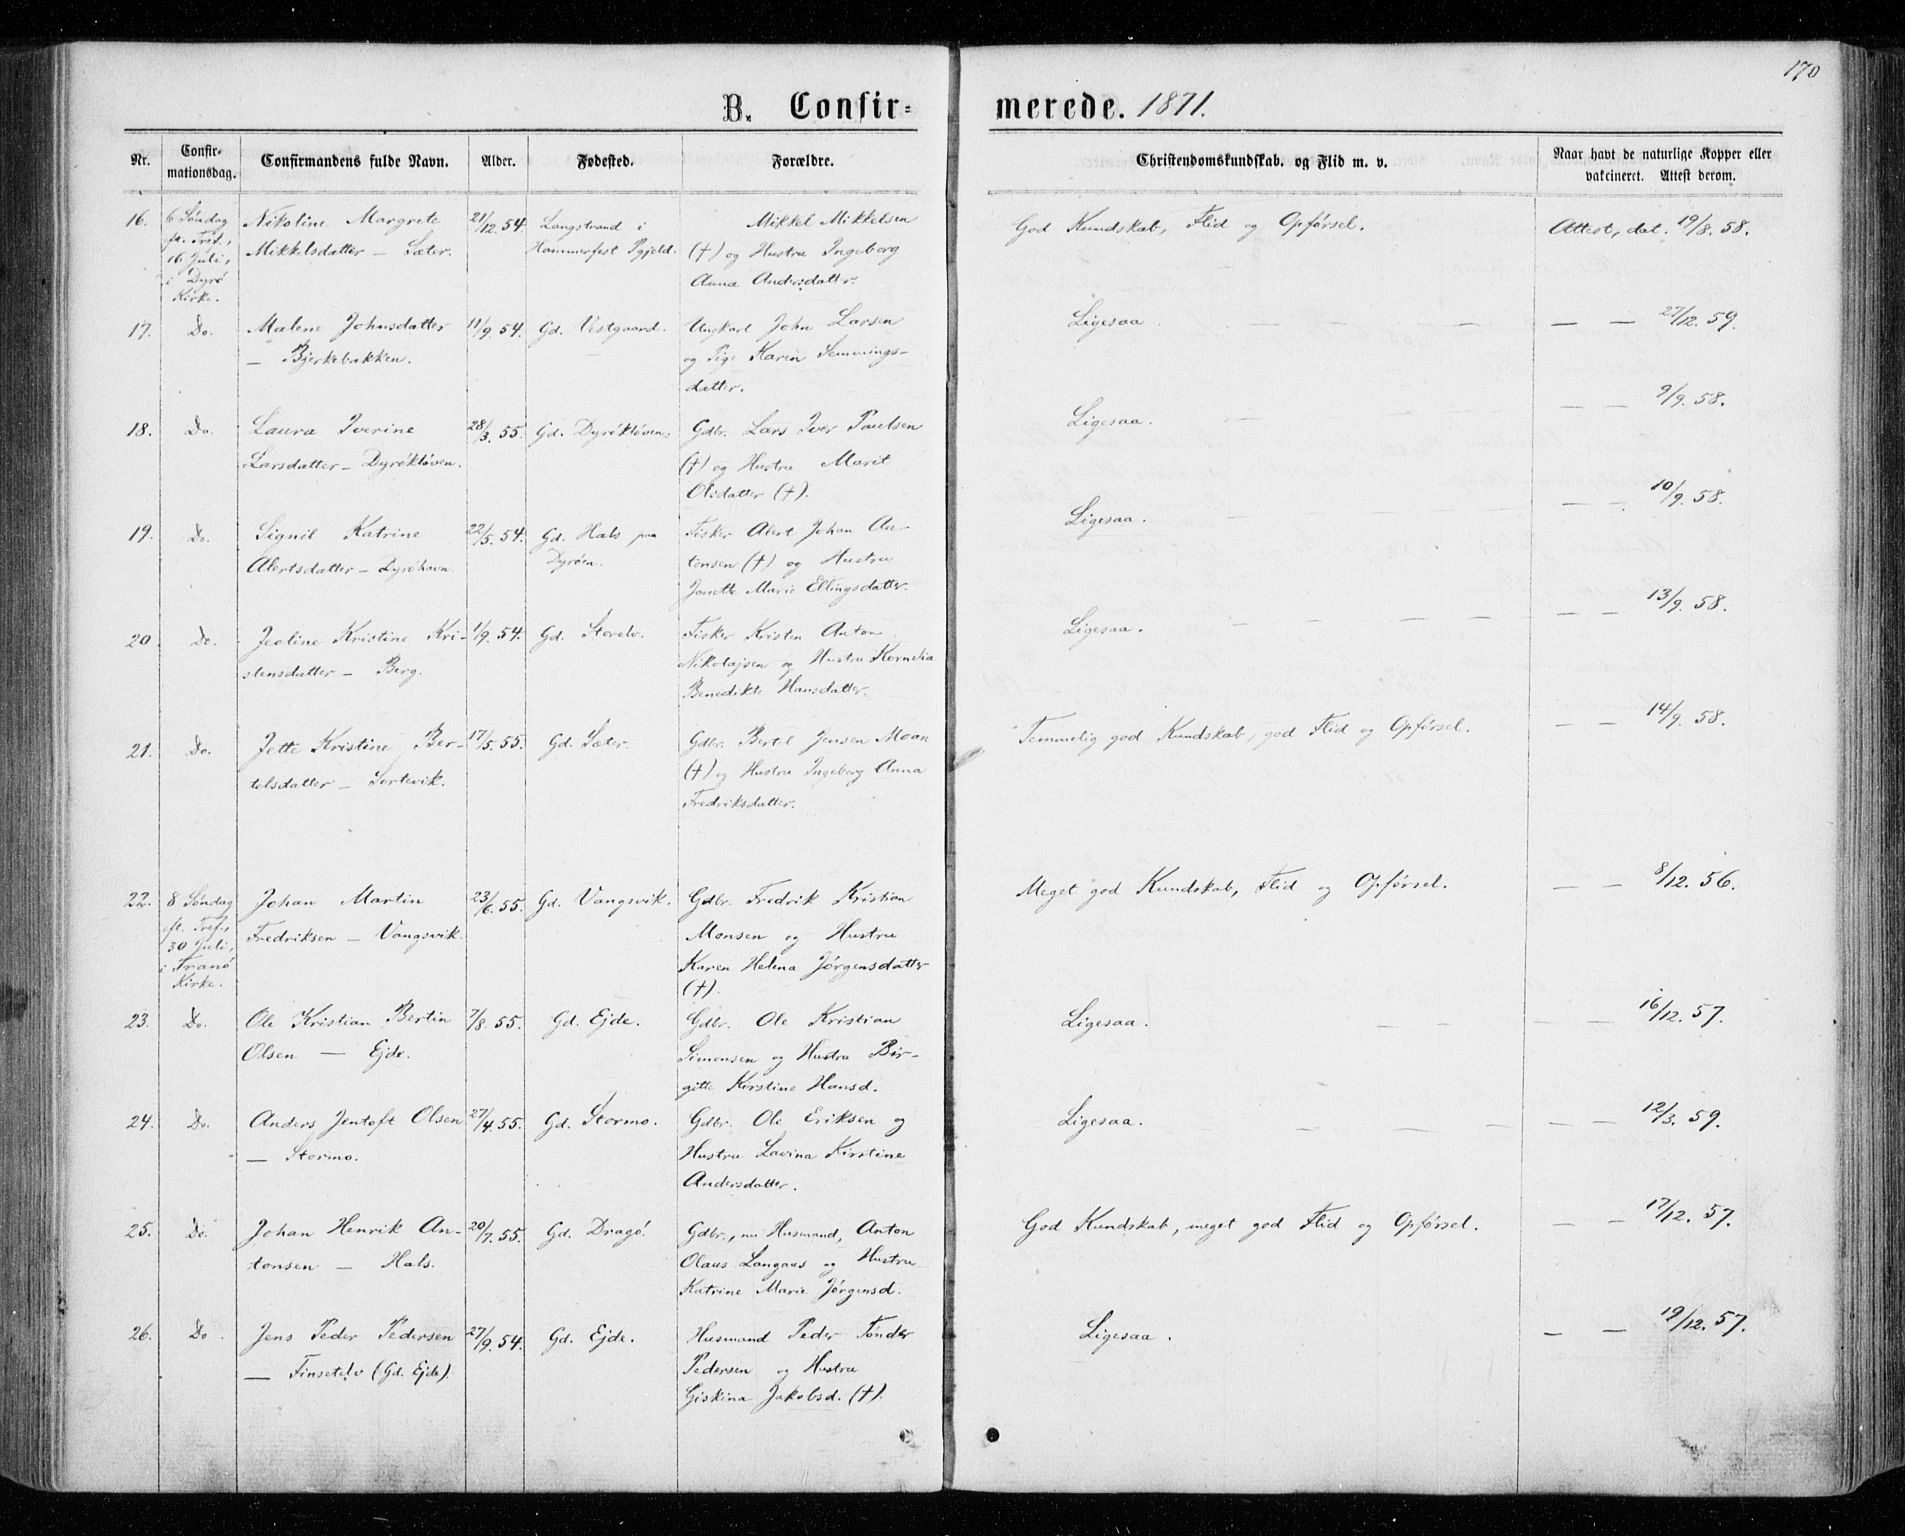 170
B. Confir= merede. 1871.
Nr. Confir-mationsdag. Confirmandens fulde Navn. Alder. Fødested. Forældre. Christendomskundskab. og Flid m. v. Naar havt de naturlige Kopper eller vakcineret. Attest derom.
16. 6 Søndag Nikoline Margrete 21/12.54. Langstrand i Mikkel Mikkelsen God Kundskab, Flid og Opførsel. Attest, dat. 19/8.58.
ft. Tref., Mikkelsdatter — Sæter. Hammerfest Pgjeld. (†) og Hustru Ingeborg
16 Juli, Anna Andersdatter.
i Dyrø
Kirke.
17. Do. Malene Johnsdatter 11/9.54. Gd. Vestgaard. Ungkarl John Larsen Ligesaa — — — — — — 27/12.59.
— Bjerkebakken. og Pige Karen Semmings-
datter.
18. Do. Laura Iverine 28/3.55. Gd. Dyrøkløven. Gdbr. Lars Iver Paulsen Ligesaa. — — — — — — 9/9.58.
Larsdatter — Dyrøkløven. (†) og Hustru Marit
Olsdatter (†).
19. Do. Signil Katrine 22/5.54. Gd. Hals paa Fisker Alert Johan An- Ligesaa. — — — — — — 10/9.58.
Alertsdatter — Dyrøhavn. Dyrøen. tonsen (†) og Hustru
Janette Marie Ellingsdatter.
20. Do. Jeoline Kristine Kri- 1/9.54. Gd. Storelv. Fisker Kristen Anton Ligesaa. — — — — — — 13/9.58.
stensdatter — Berg. Nikolajsen og Hustru Kornelia
Benedikte Hansdatter.
21. Do. Jette Kristine Ber- 17/5.55. Gd. Sæter. Gdbr. Bertel Jensen Moan Temmelig god Kundskab, god Flid og Opførsel. — — 14/9.58.
telsdatter — Sortevik. (†) og Hustru Ingeborg Anna
Fredriksdatter.
22. 8 Søndag Johan Martin 23/6.55. Gd. Vangsvik. Gdbr. Fredrik Kristian Meget god Kundskab, Flid og Opførsel. — — 8/12.56.
ft. Tref., Fredriksen — Vangsvik. Monsen og Hustru
30 Juli, Karen Helena Jørgensdatter
i Tranø (†).
Kirke.
23. Do. Ole Kristian Bertin 7/8.55. Gd. Ejde. Gdbr. Ole Kristian Ligesaa. — — — — 16/12.57.
Olsen — Ejde. Simonsen og Hustru Bir-
gitte Kirstine Hansd.
24. Do. Anders Jentoft Olsen 27/4.55. Gd. Stormo. Gdbr. Ole Eriksen og Ligesaa. — — — — — — — 12/3.59.
— Stormo. Hustru Lavina Kirstine
Andersdatter.
25. Do. Johan Henrik An- 20/7.55. Gd. Dragø. Gdbr., nu Husmand, Anton God Kundskab, meget god Flid og Opførsel. — — 17/12.57.
tonsen — Hals. Olaus Langaas og Hustru
Katrine Marie Jørgensd.
26. Do. Jens Peder Pedersen 27/9.54. Gd. Ejde. Husmand Peder Tønder Ligesaa. — — 19/12.57.
— Finsetelv (Gd. Ejde). Pedersen og Hustru
Giskina Jakobsd. (†).